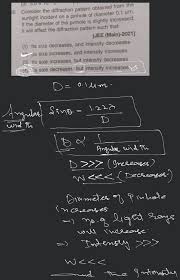 Consider the diffraction pattern obtained from the
sunlight incident on a pinhole of diameter 0.1 μm.
If the diameter of the pinhole is slightly increased,
it will affect the diffraction pattern such that
[JEE (Main)-2021]
(1) Its size decreases, and intensity decreases
Its size increases, and intensity increases
(3) Its size increases, but intensity decreases
Its size decreases, but intensity increases
D = 0.1 μm.
Angular width
Sinθ = 1.22λ / D
D ∝ 1 / Angular width
D >>> (Increases)
W <<< (Decreases)
Diameter of Pinhole
increases
→ no. of light rays
will increase
⇒ Intensity >>>
W <<<
and the Intensity